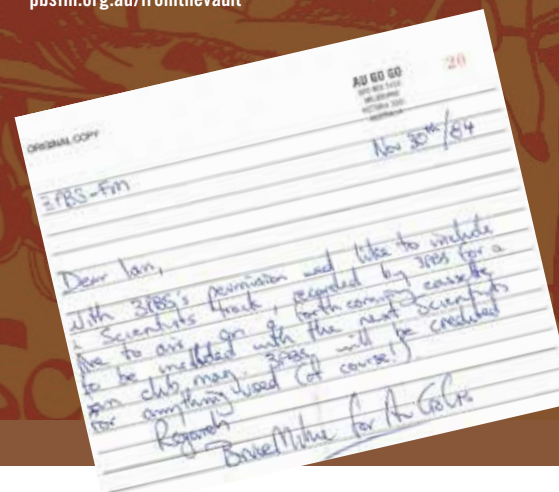 pbsfm.org.au/fromthevault
AU GO GO
20
ORIGINAL COPY
Nov 30th/84
3PBS-FM
Dear Ian,
With 3PBS's permission we'd like to include
a Scientists track, recorded by 3PBS for a
live to air on a forthcoming cassette
to be included with the next Scientists
fan club mag. 3PBS will be credited
for anything used (of course!)
Regards
Bruce Milne for Au Go Go.